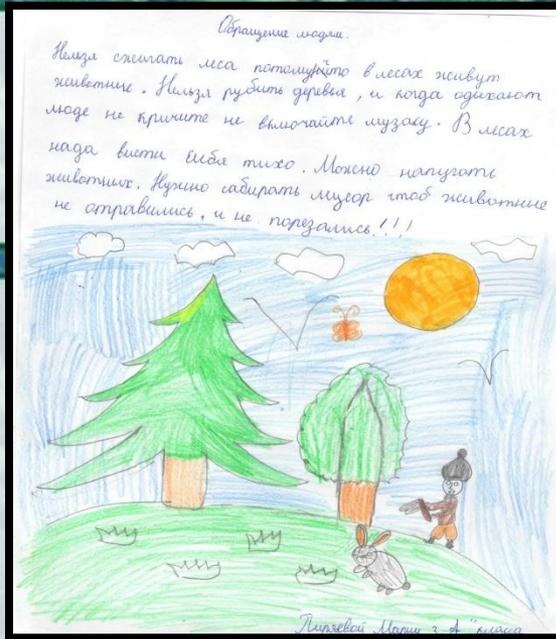 Обращение людям.
Нельзя сжигать леса потомушто в лесах живут
животные. Нельзя рубить деревья, и когда одихают
люде не кричите не включайте музаку. В лесах
нада висти сибя тихо. Можно напугать
животных. Нужно сабирать мусор чтоб животные
не отравились, и не порезались!!!
Марии 3 "А" класса